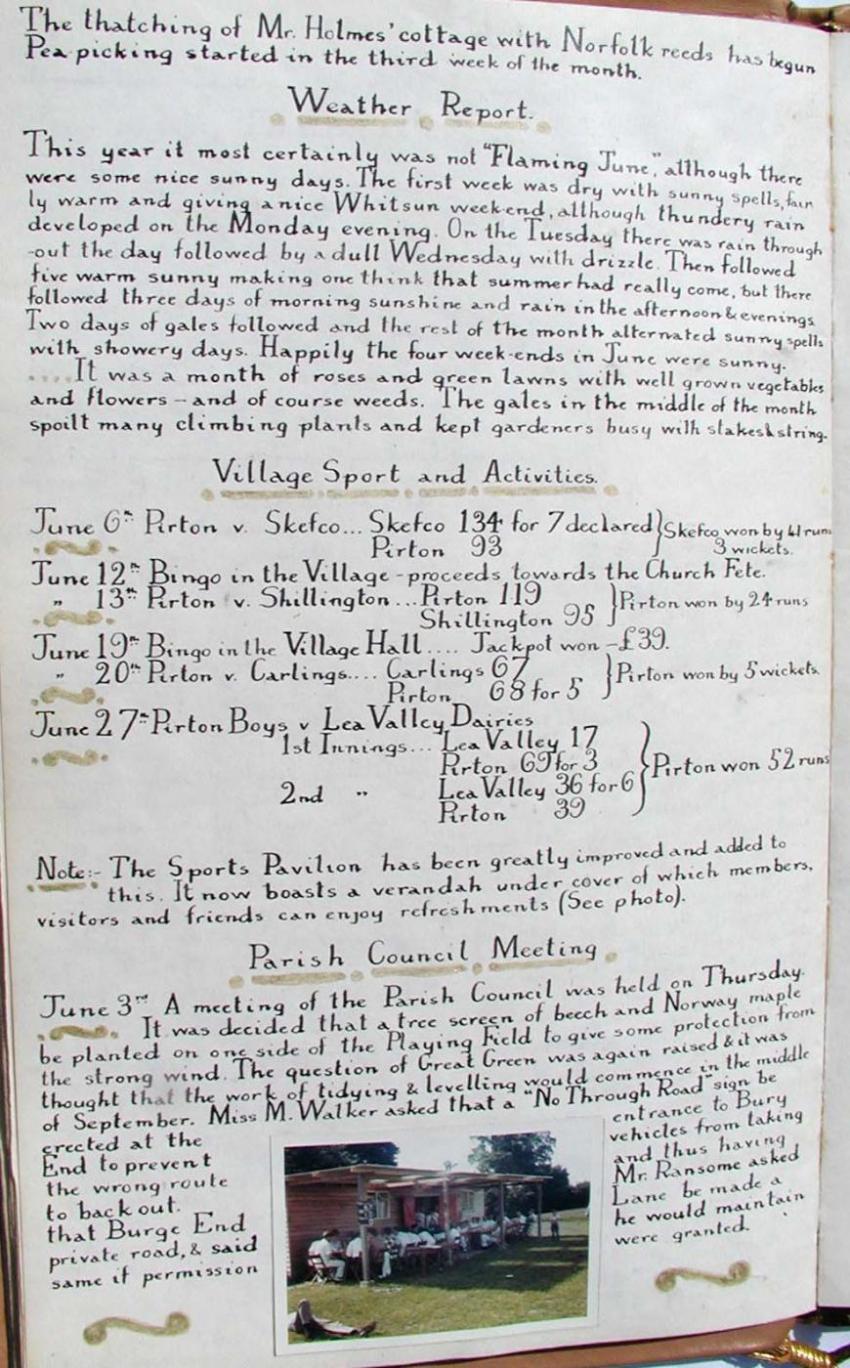 The thatching of Mr. Holmes' cottage with Norfolk reeds has begun
Pea picking started in the third week of the month.
Weather Report.
This year it most certainly was not "Flaming June", although there
were some nice sunny days. The first week was dry with sunny spells, fair
ly warm and giving a nice Whitsun week-end, although thundery rain
developed on the Monday evening. On the Tuesday there was rain through
-out the day followed by a dull Wednesday with drizzle. Then followed
five warm sunny making one think that summer had really come, but there
followed three days of morning sunshine and rain in the afternoon & evenings.
Two days of gales followed and the rest of the month alternated sunny spells
with showery days. Happily the four week-ends in June were sunny.
.... It was a month of roses and green lawns with well grown vegetables
and flowers – and of course weeds. The gales in the middle of the month
spoilt many climbing plants and kept gardeners busy with stakes & string.
Village Sport and Activities.
June 6th Pirton v. Skefco... Skefco 134 for 7 declared } Skefco won by 41 runs
Pirton 93 3 wickets.
June 12th Bingo in the Village - proceeds towards the Church Fete.
" 13th Pirton v. Shillington ... Pirton 119 } Pirton won by 24 runs
Shillington 95
June 19th Bingo in the Village Hall .... Jackpot won – £39.
" 20th Pirton v. Carlings.... Carlings 67 } Pirton won by 5 wickets.
Pirton 68 for 5
June 27th Pirton Boys v Lea Valley Dairies
1st Innings... Lea Valley 17
Pirton 69 for 3 } Pirton won 52 runs
2nd " Lea Valley 36 for 6
Pirton 39
Note:- The Sports Pavilion has been greatly improved and added to
this. It now boasts a verandah under cover of which members,
visitors and friends can enjoy refreshments (See photo).
Parish Council Meeting
June 3rd A meeting of the Parish Council was held on Thursday.
It was decided that a tree screen of beech and Norway maple
be planted on one side of the Playing Field to give some protection from
the strong wind. The question of Great Green was again raised & it was
thought that the work of tidying & levelling would commence in the middle
of September. Miss M. Walker asked that a "No Through Road" sign be
erected at the entrance to Bury
End to prevent vehicles from taking
the wrong route and thus having
to back out. Mr. Ransome asked
that Burge End Lane be made a
private road, & said he would maintain
same if permission were granted.